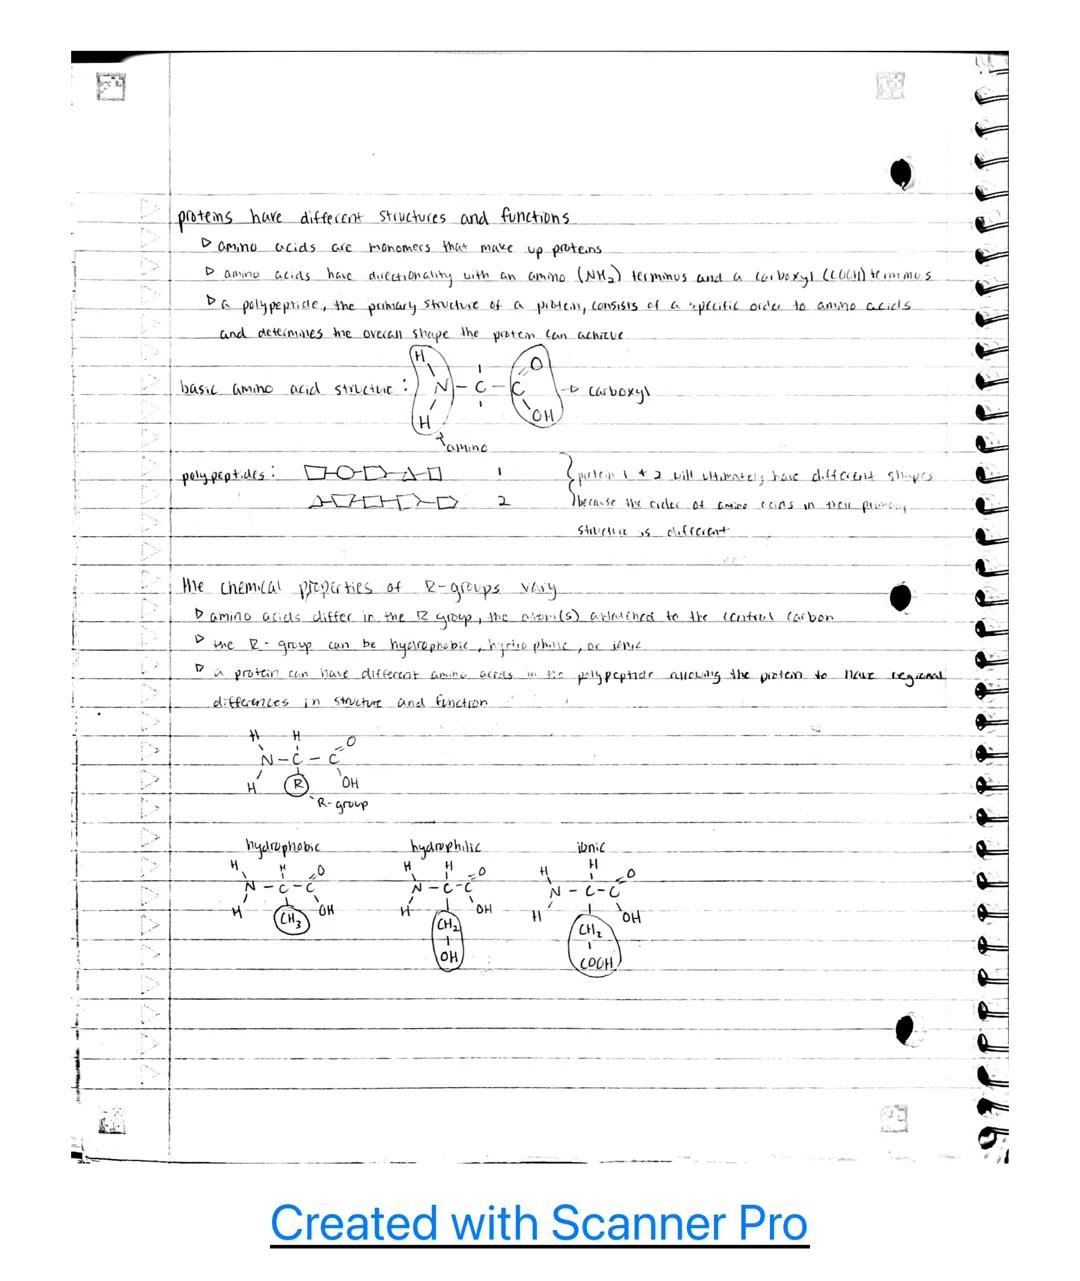 proteins have different structures and functions
▷ amino acids are monomers that make up proteins
▷ amino acids have directionality with an amino (NH₂) terminus and a carboxyl (COOH) terminus
▷ a polypeptide, the primary structure of a protein, consists of a specific order to amino acids
and determines the overall shape the protein can achieve
H O
basic amino acid structure: N - C - C → carboxyl
H OH
amino
polypeptides: 1 protein 1 + 2 will ultimately have different shapes
2 because the order of amino acids in their primary
structure is different
the chemical properties of R-groups vary
▷ amino acids differ in the R group, the atom(s) attatched to the central carbon
▷ the R-group can be hydrophobic, hydrophilic, or ionic
▷ a protein can have different amino acids in the polypeptide allowing the protein to have regional
differences in structure and function
H H O
N - C - C
H R OH
R-group
hydrophobic hydrophilic ionic
H H O H H O H H O
N - C - C N - C - C N - C - C
H CH₃ OH H CH₂ OH H CH₂ OH
OH COOH
Created with Scanner Pro